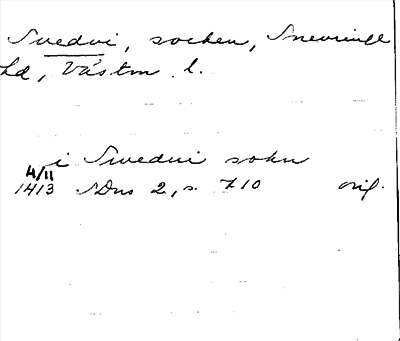 Svedvi, socken, Snevringe
hd, Västm l.
i Swedui sokn
4/11
1413 SDns 2, s. 710 orig.